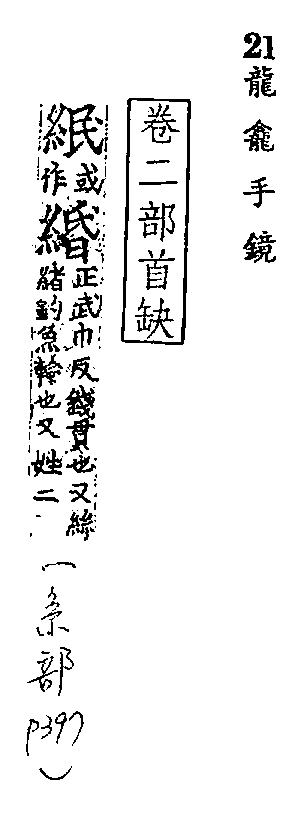 21 龍龕手鏡
卷二部首缺
䋋或作緡正武巾反錢貫也又絲
緒釣魚綸也又姓二
（糸部 P397）